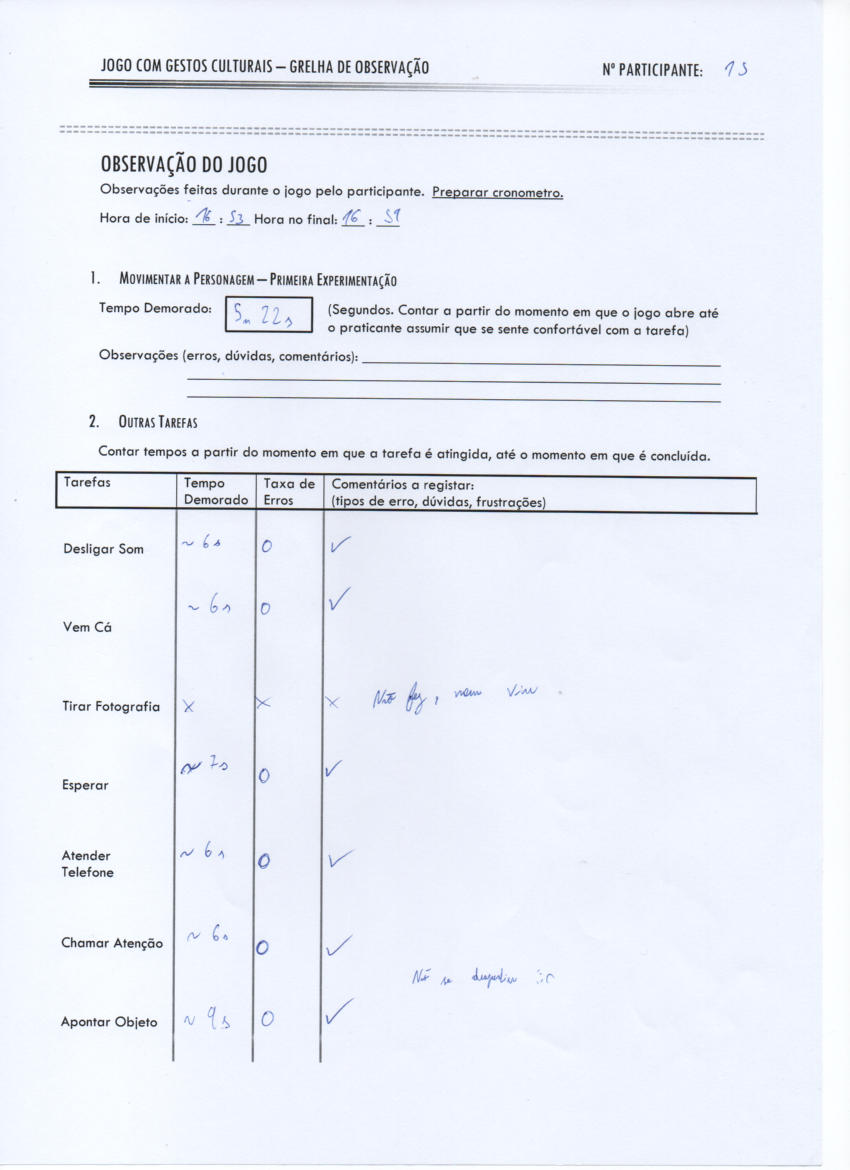 JOGO COM GESTOS CULTURAIS – GRELHA DE OBSERVAÇÃO Nº PARTICIPANTE: 15
OBSERVAÇÃO DO JOGO
Observações feitas durante o jogo pelo participante. Preparar cronometro.
Hora de início: 16 : 53 Hora no final: 16 : 59
1. MOVIMENTAR A PERSONAGEM – PRIMEIRA EXPERIMENTAÇÃO
Tempo Demorado: 5m 22s (Segundos. Contar a partir do momento em que o jogo abre até
o praticante assumir que se sente confortável com a tarefa)
Observações (erros, dúvidas, comentários):
2. OUTRAS TAREFAS
Contar tempos a partir do momento em que a tarefa é atingida, até o momento em que é concluída.
Tarefas Tempo Demorado Taxa de Erros Comentários a registar: (tipos de erro, dúvidas, frustrações)
Desligar Som ~ 6s 0 ✓
Vem Cá ~ 6s 0 ✓
Tirar Fotografia X X X Não fez, nem viu
Esperar ~ 7s 0 ✓
Atender Telefone ~ 6s 0 ✓
Chamar Atenção ~ 6s 0 ✓
Não se
Apontar Objeto ~ 9s 0 ✓